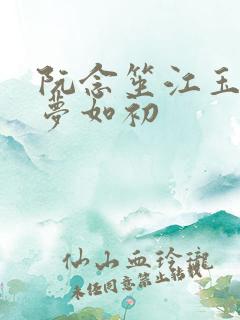 阮念笙江玉
梦如初
仙山血玲珑
未经同意禁止转载